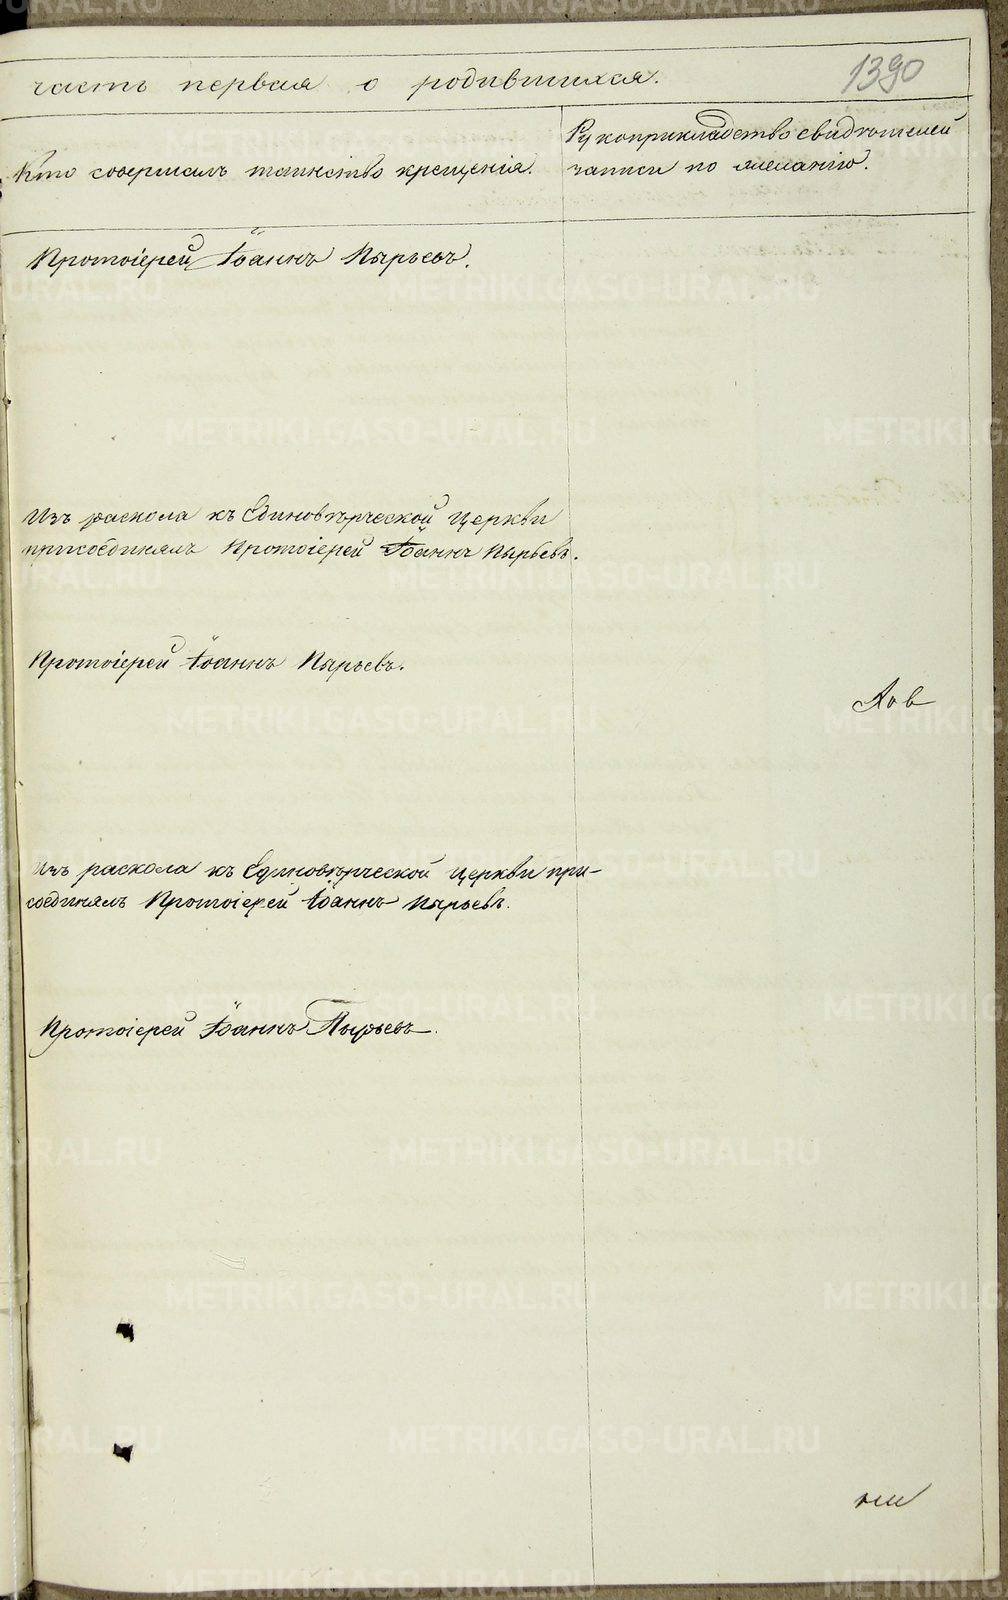 часть первая о родившихся.
1390
Кто совершалъ таинство крещенія.
Рукоприкладство свидѣтелей
записи по желанію.
Протоіерей Іоаннъ Пырьевъ.
Изъ раскола къ Единовѣрческой Церкви
присоединялъ Протоіерей Іоаннъ Пырьевъ.
Протоіерей Іоаннъ Пырьевъ.
Изъ раскола къ Единовѣрческой церкви при-
соединялъ Протоіерей Іоаннъ Пырьевъ.
Протоіерей Іоаннъ Пырьевъ.
METRIKI.GASO-URAL.RU